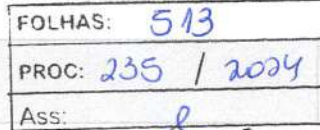 FOLHAS: 513
PROC: 235 / 2024
Ass: